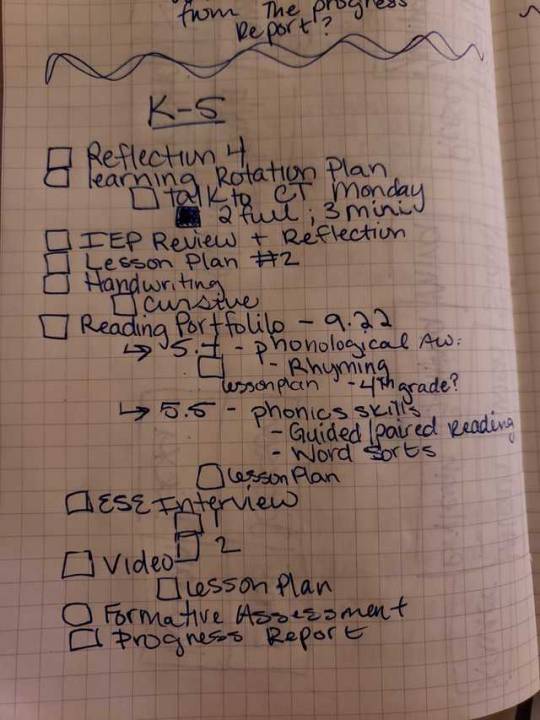 from The progress
Report?
K-5
Reflection 4
Learning Rotation Plan
Talk to CT Monday
2 full, 3 mini
IEP Review + Reflection
Lesson Plan #2
Handwriting
Cursive
Reading Portfolilo - 9.22
↳ 5.1 - phonological Aw.
- Rhyming
lesson plan - 4th grade?
↳ 5.5 - phonics skills
- Guided/paired Reading
- Word Sorts
Lesson Plan
ESE Interview
1
2
Video
Lesson Plan
Formative Assessment
Progress Report